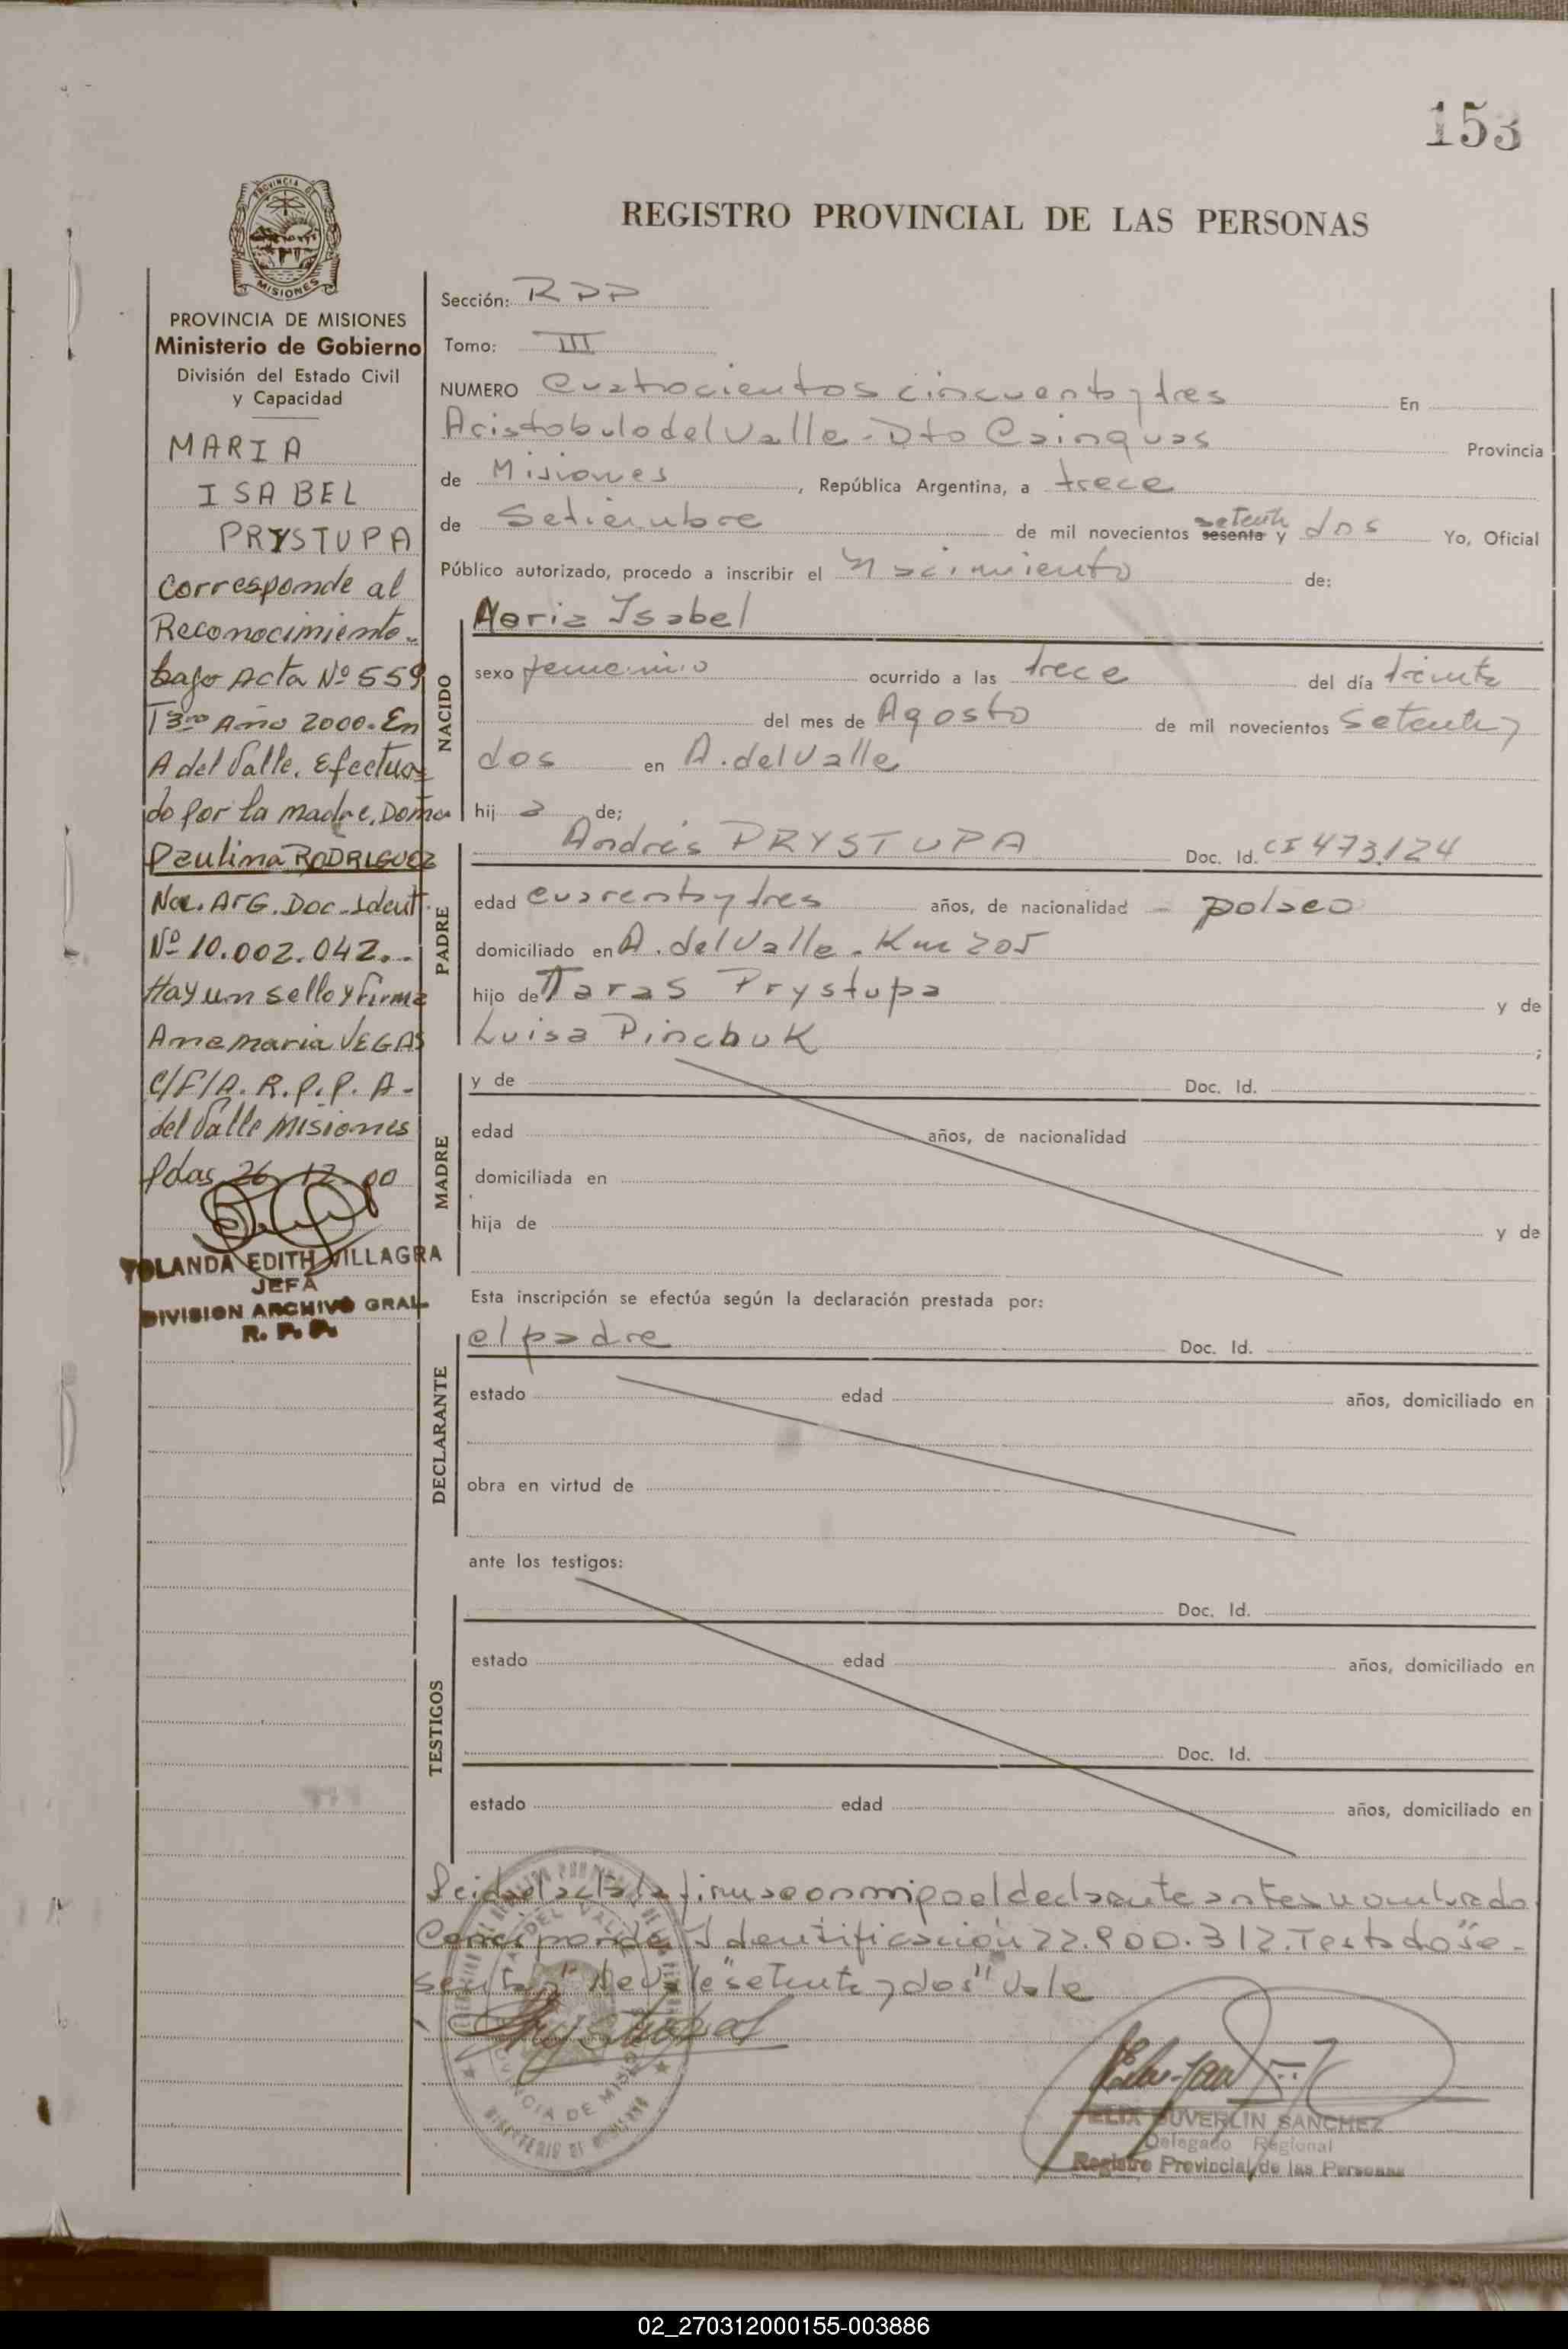 153
REGISTRO PROVINCIAL DE LAS PERSONAS
PROVINCIA DE MISIONES
PROVINCIA DE MISIONES
Ministerio de Gobierno
División del Estado Civil
y Capacidad
MARIA
ISABEL
PRYSTUPA
Corresponde al
Reconocimiento.
bajo Acta Nº 559
T 3ro Año 2000. En
A del Valle. Efectua-
do por la madre. Doña
Paulina RODRIGUEZ
Nac. ArG. Doc. Ident.
Nº 10.002.042.-
Hay un sello y firma
Ana maria VEGAS
C/F/A. R.P.P. A-
del Valle Misiones
Pdas 26-12-00
YOLANDA EDITH VILLAGRA
JEFA
DIVISION ARCHIVO GRAL
R. P. P.
Sección: RPP
Tomo: III
NUMERO Cuatrocientos cincuenta y tres En
Aristobulo del Valle - Dto Cainguas Provincia
de Misiones, República Argentina, a trece
de Setiembre de mil novecientos sesenta setenta y dos Yo, Oficial
Público autorizado, procedo a inscribir el Nacimiento de:
NACIDO
Maria Isabel
sexo femenino ocurrido a las trece del día treinta
del mes de Agosto de mil novecientos setenta y
dos en A. del Valle
hij a de;
PADRE
Andrés PRYSTUPA Doc. Id. CI 473.124
edad cuarenta y tres años, de nacionalidad - polaco
domiciliado en A. del Valle. Km 205
hijo de Taras Prystupa y de
Luisa Pinchuk ;
MADRE
y de Doc. Id.
edad años, de nacionalidad
domiciliada en
hija de y de
Esta inscripción se efectúa según la declaración prestada por:
DECLARANTE
el padre Doc. Id.
estado edad años, domiciliado en
obra en virtud de
ante los testigos:
TESTIGOS
Doc. Id.
estado edad años, domiciliado en
Doc. Id.
estado edad años, domiciliado en
Leida el acta la firma conmigo el declarante antes nombrado
Corresponde Identificación 22.900.312. Testado "se-
senta" No vale "setenta y dos" Vale
FELIX SUVERLIN SANCHEZ
Delegado Regional
Registro Provincial de las Personas
02_270312000155-003886